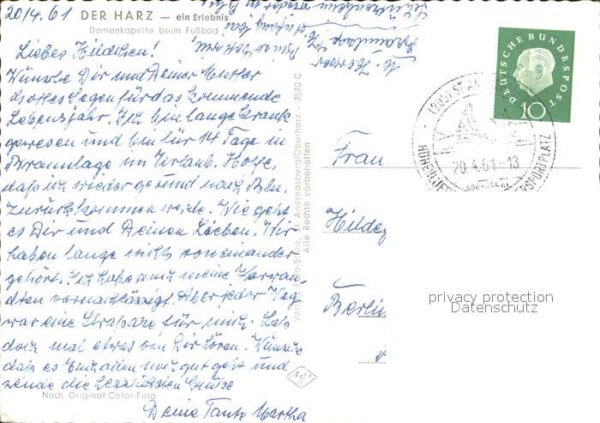 20/4.61
DER HARZ — ein Erlebnis
Damenkapelle beim Fußbad
Liebes Hildchen!
Wünsche Dir und Deiner Mutter
Gottes Segen für das kommende
Lebensjahr. Ich bin lange krank
gewesen und bin für 14 Tage in
Braunlage im Urlaub. Hoffe,
daß ich wieder gesund nach Bln.
zurückkommen werde. Wie geht
es Dir und Deinen Lieben. Wir
haben lange nichts voneinander
gehört. Ich habe auch meine Verwan-
dten vernachlässigt. Aber jeder Weg
war eine Strapaze für mich. Laß
doch mal etwas von Dir hören. Wünsche
daß es Euch allen noch gut geht und
sende die herzlichsten Grüße
Deine Tante Martha
Nach Original-Color-Foto
St. Andreasberg/Oberharz
3570 C
Alle Rechte vorbehalten
Frau
Hildeg
Berlin
DEUTSCHE BUNDESPOST
10
20.4.61-13
privacy protection
Datenschutz